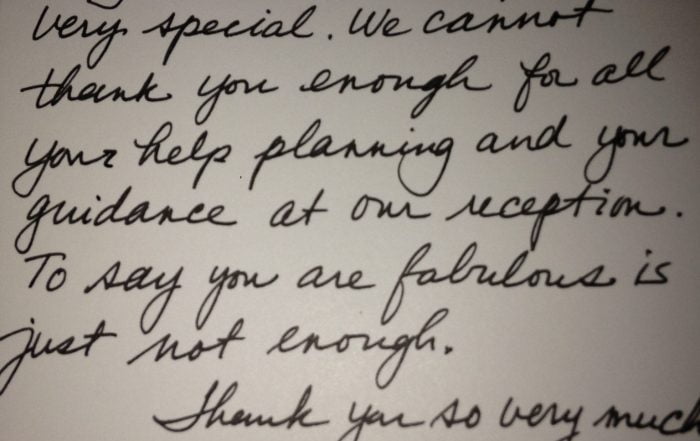 very special. We cannot
thank you enough for all
your help planning and your
guidance at our reception.
To say you are fabulous is
just not enough.
Thank you so very much